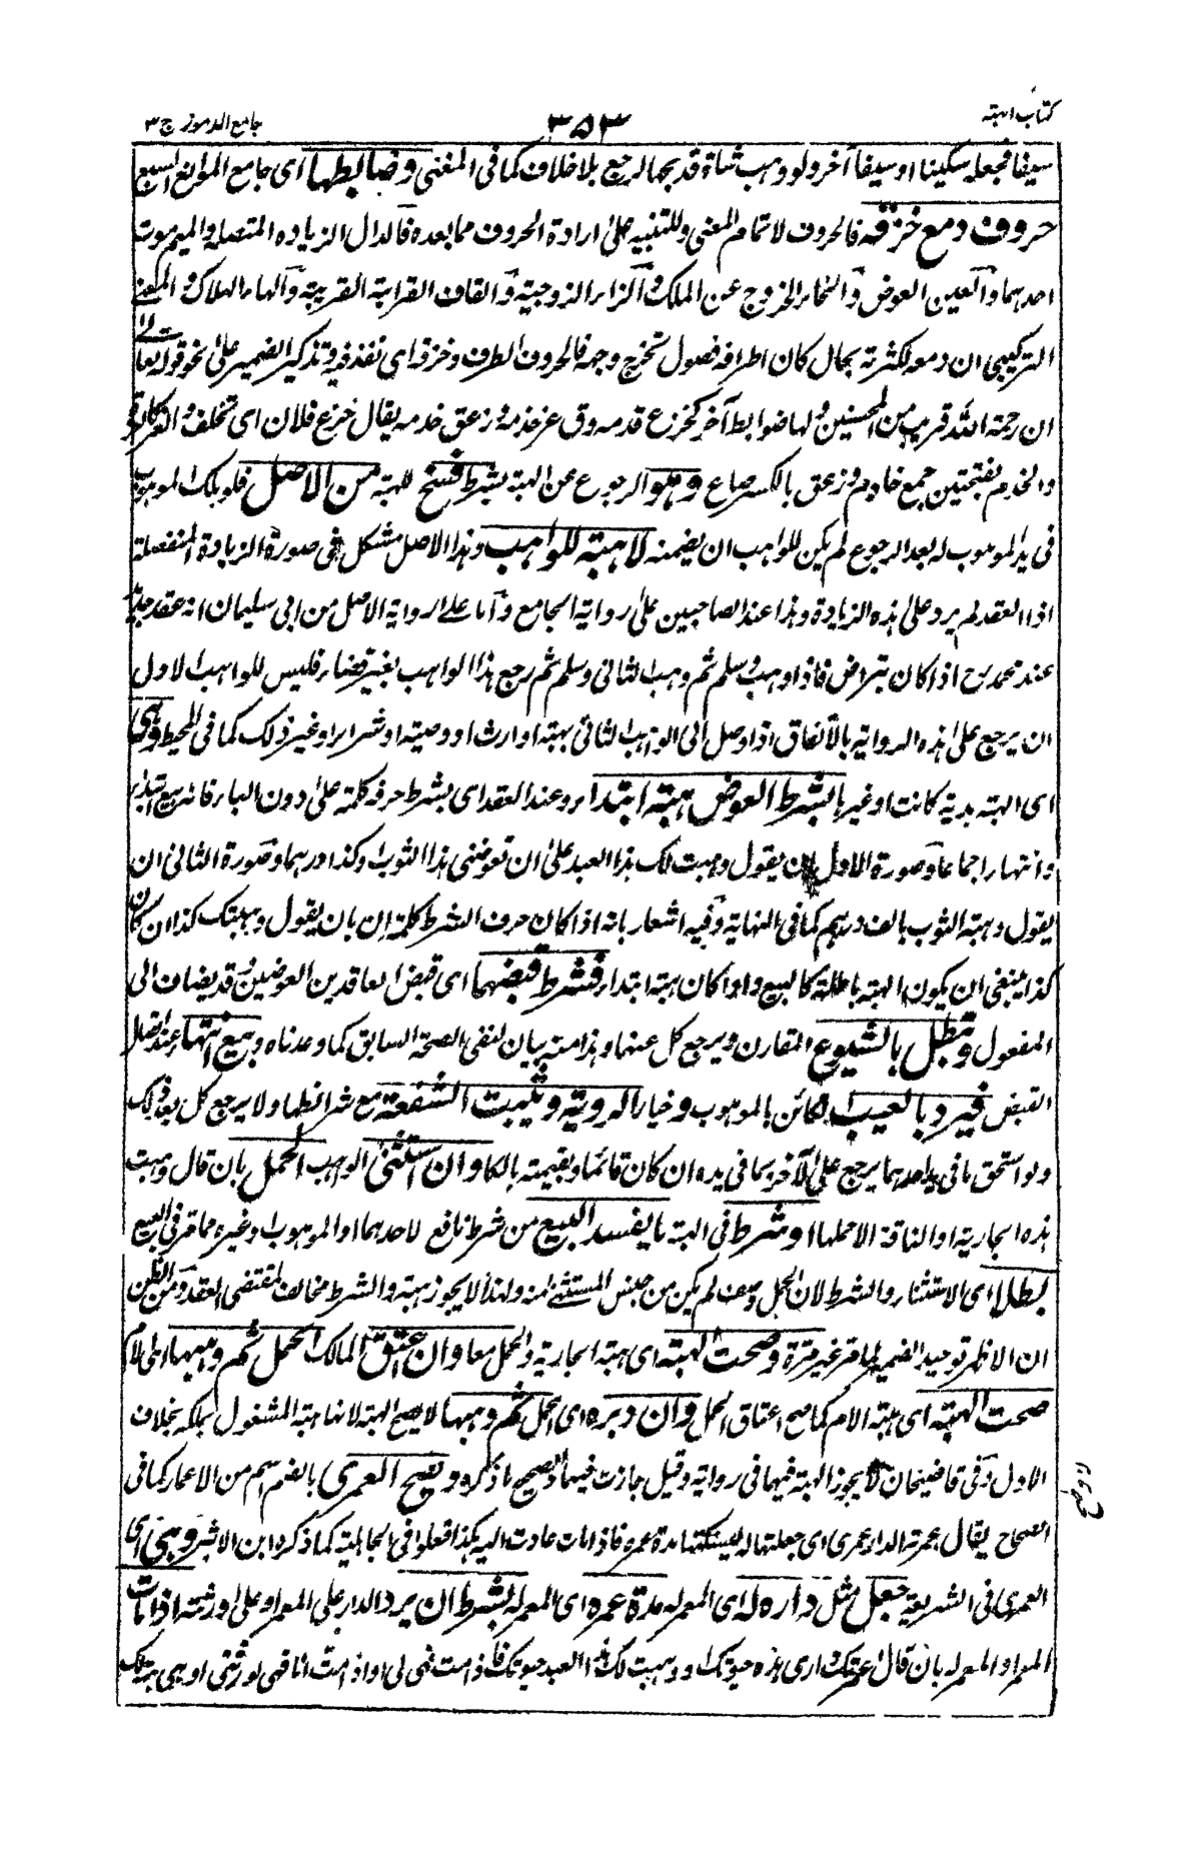 كتاب الهبة
٣٥٣
جامع الرموز ج ٣
سيفا فجعله سكينا او سيفا آخر ولو وهب شاة فذبحها لرجع بلا خلاف كما فى المغنى وضابطها اى جامع الموانع السبع
حروف دمع خزقه فالحروف لاتمام المعنى وللتنبيه على ارادة الحروف مما بعده فالدال الزياده المتصلة والميم موت
احدهما والعين العوض والخاء الخروج عن الملك والزاء الزوجية والقاف القرابة القريبة والهاء الهلاك والمعنى
التركيبى ان دمعه لكثرته بحال كان اطرافه فصول تخرج وجهه فالحروف الطرف وخزقه اى نفذ فيه وتذكير الضمير على نحو قوله تعالى
ان رحمة الله قريب من المحسنين ولها ضوابط آخر كخزع قدمه وق عز خدمه وزعق خدمه يقال خزع فلان اى تخلف
والخدم بفتحتين جمع خادم وزعق بالكسر صاع وهو الرجوع عن الهبة بشرط فسخ للهبة من الاصل فلو هلك الموهوب
فى يد الموهوب له بعد الرجوع لم يكن للواهب ان يضمنه لا هبة للواهب وهذا الاصل مشكل فى صورة الزيادة المنفصلة
اذ العقد لم يرد على هذه الزيادة وهذا عند الصاحبين على رواية الجامع واما على رواية الاصل من ابى سليمان انه عقد جديد
عند محمد رح اذا كان بتراض فاذا وهب وسلم ثم وهب الثانى وسلم ثم رجع هذا الواهب بغير قضاء فليس للواهب الاول
ان يرجع على هذه الرواية بالاتفاق اذا وصل الى الواهب الثانى بهبة او ارث او وصية او شراء او غير ذلك كما فى المحيط وهى
اى الهبة هدية كانت او غيرها بشرط العوض هبة ابتداء وعند العقد اى بشرط حرفه كلمة على دون الباء فانه بيع ابتداء
وانتهاء اجماعا وصورة الاول ان يقول وهبت لك هذا العبد على ان تعوضنى هذا الثوب او كذا درهما وصورة الثانى ان
يقول وهبة الثوب بالف درهم كما فى النهاية وفيه اشعار بانه اذا كان حرف الشرط كلمة ان بان يقول وهبتك كذا ان كان
كذا ينبغى ان يكون الهبة باطلة كالبيع واذا كان هبة ابتداء فشرط قبضهما اى قبض العاقدين العوضين وقد يضاف الى
المفعول وتبطل بالشيوع المقارن ويرجع كل عنهما وهذا منه بيان لنفى الصحة السابق كما وعدناه وبيع انتهاء عند اتصال
القبض فيرد بالعيب الكائن بالموهوب وخيار الروية وتثبت الشفعة مع شرائطها ولا يرجع كل بعد ذلك
ولو استحق ما فى يد احدهما يرجع على الآخر بما فى يده ان كان قائما وبقيمته هالكا وان استثنى الواهب الحمل بان قال وهبت
هذه الجارية او الناقة الا حملها او شرط فى الهبة ما يفسد البيع من شرط نافع لاحدهما او الموهوب او غيره مما مر فى البيع
بطلا اى الاستثناء والشرط لان الحمل وصف لم يكن من جنس المستثنى منه ولهذا لا يجوز هبته والشرط مخالف لمقتضى العقد ومن الظن
ان الاظهر توحيد الضمير لما مر غير مرة وصحت الهبة اى هبة الجارية والحمل معا وان عتق المالك الحمل ثم وهبها اى الام
صحت الهبة اى هبة الام كما صح اعتاق الحمل وان دبره اى الحمل ثم وهبها لا يصح الهبة لانها هبة المشغول بملكه بخلاف
الاول وفى قاضيخان لا يجوز الهبة فيهما فى رواية وقيل جازت فيهما والصحيح ما ذكره وتصح العمرى بالضم اسم من الاعمار كما فى
الصحاح يقال عمرته الدار عمرى اى جعلتها له ليسكنها مدة عمره فاذا مات عادت اليه هكذا فعلوا فى الجاهلية كما ذكره ابن الاثير وهى اى
العمرى فى الشريعة جعل مثل داره له اى المعمر له مدة عمره اى المعمر له بشرط ان يرد الدار على المعمر او على ورثته اذا مات
المعمر او المعمر له بان قال اعمرتك دارى هذه حيوتك او وهبت لك هذا العبد حيوتك فاذا مت فهى لى او اذا مت انا فهى لورثتى او هى هبة لك